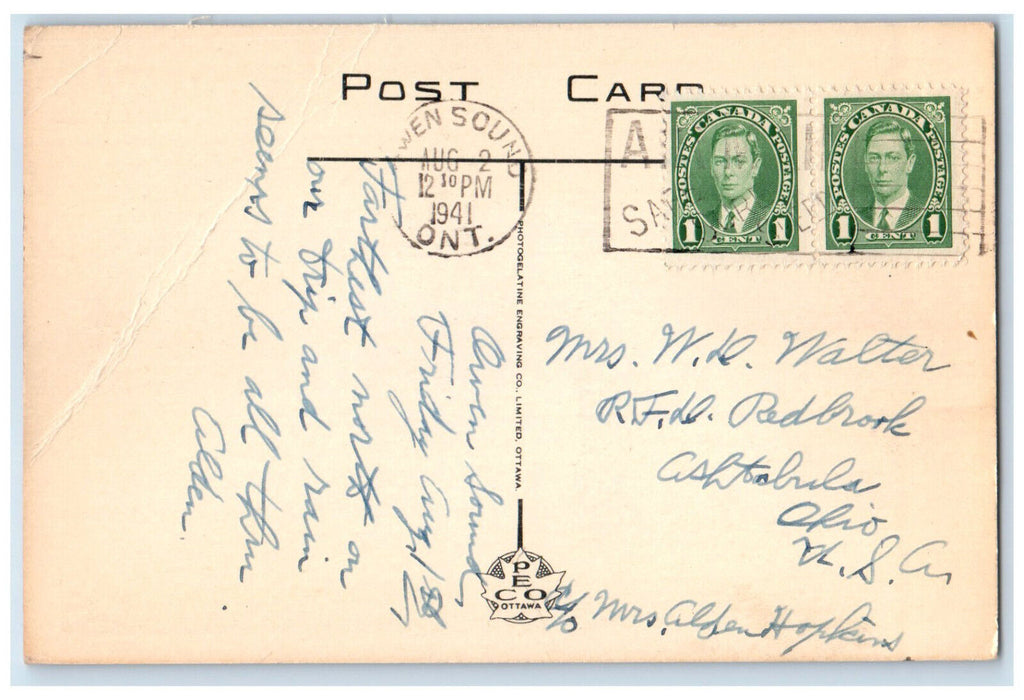 POST CARD
OWEN SOUND
AUG 2
12 30 PM
1941
ONT.
POSTES CANADA POSTAGE
1 CENT 1
POSTES CANADA POSTAGE
1 CENT 1
Owen Sound
Friday Aug 1
Farthest north on
our trip and rain
seems to be all thru
Alden
PHOTOGELATINE ENGRAVING CO., LIMITED, OTTAWA.
PECO
OTTAWA
Mrs. W.D. Walter
R.F.D. Redbrook
Ashtabula
Ohio
U.S.A.
c/o Mrs. Alden Hopkins